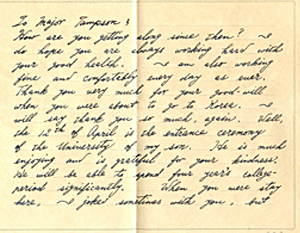 To Major Tampson ;
How are you getting along since then? I
do hope you are always working hard with
your good health. I am also working
fine and comfortably every day as ever.
Thank you very much for your good-will
when you were about to go to Korea. I
will say thank you so much, again. Well,
the 12th of April is the entrance ceremony
of the University of my son. He is much
enjoying and is grateful for your kindness.
We will be able to spend four year's college-
period significantly. When you were stay
here, I joked sometimes with you, but